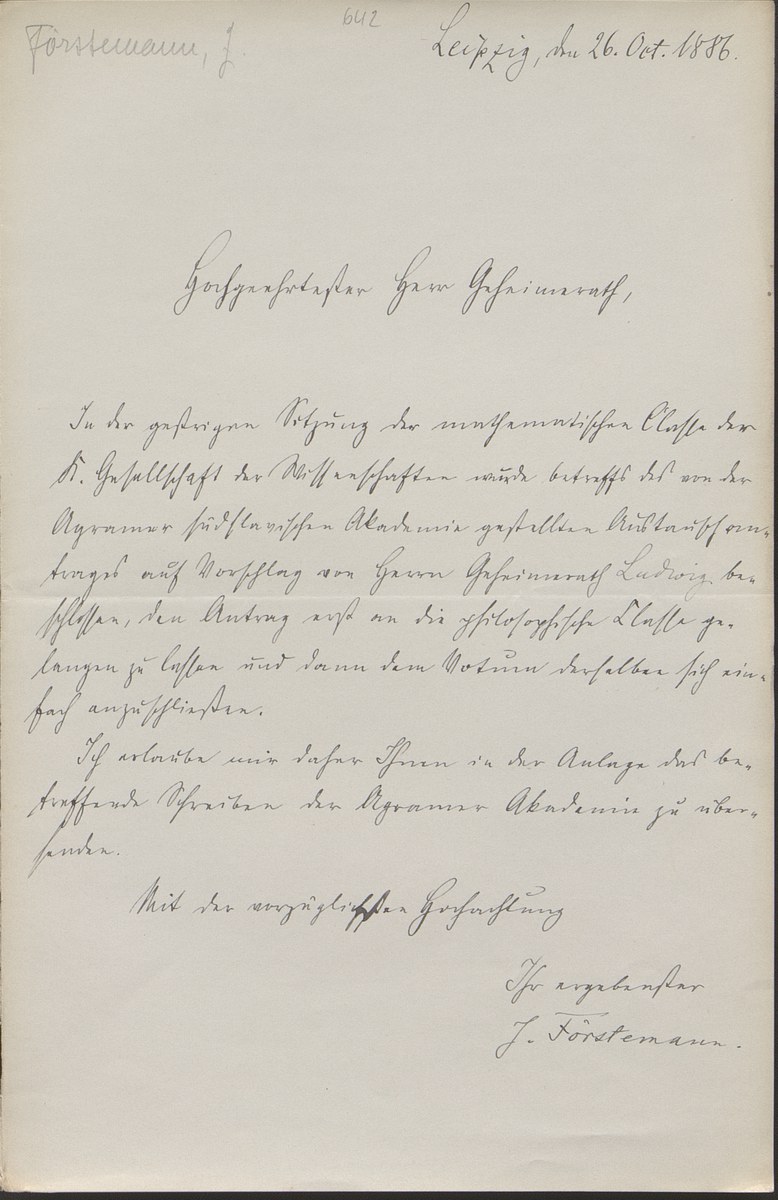 642
Förstemann, J.
Leipzig, den 26. Oct. 1886.
Hochgeehrtester Herr Geheimerath,
In der gestrigen Sitzung der mathematischen Classe der
K. Gesellschaft der Wissenschaften wurde betreffs des von der
Agramer südslavischen Akademie gestellten Austauschan-
trages auf Vorschlag von Herrn Geheimerath Ludwig be-
schlossen, den Antrag erst an die philosophische Classe ge-
langen zu lassen und dann dem Votum derselben sich ein-
fach anzuschließen.
Ich erlaube mir daher Ihnen in der Anlage das be-
treffende Schreiben der Agramer Akademie zu über-
senden.
Mit der vorzüglichsten Hochachtung
Ihr ergebenster
J. Förstemann.